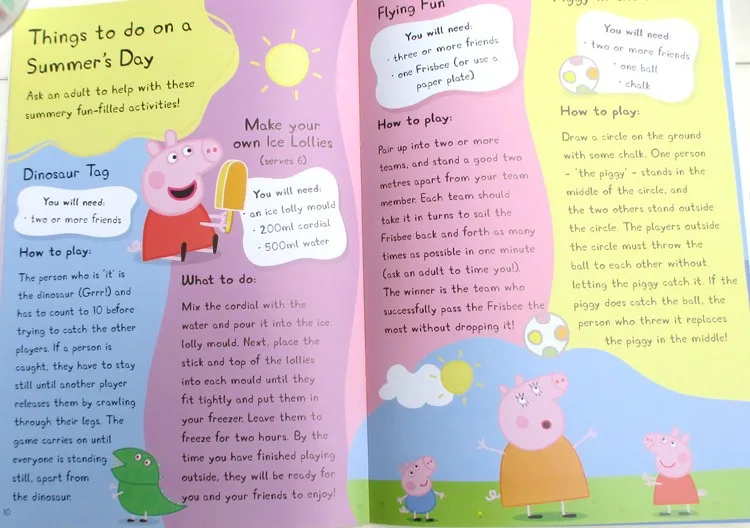 Things to do on a
Summer's Day
Ask an adult to help with these
summery fun-filled activities!
Dinosaur Tag
You will need:
· two or more friends
How to play:
The person who is 'it' is
the dinosaur (Grrr!) and
has to count to 10 before
trying to catch the other
players. If a person is
caught, they have to stay
still until another player
releases them by crawling
through their legs. The
game carries on until
everyone is standing
still, apart from
the dinosaur.
10
Make your
own Ice Lollies
(serves 6)
You will need:
· an ice lolly mould
· 200ml cordial
· 500ml water
What to do:
Mix the cordial with the
water and pour it into the ice
lolly mould. Next, place the
stick and top of the lollies
into each mould until they
fit tightly and put them in
your freezer. Leave them to
freeze for two hours. By the
time you have finished playing
outside, they will be ready for
you and your friends to enjoy!
Flying Fun
You will need:
· three or more friends
· one Frisbee (or use a
paper plate)
How to play:
Pair up into two or more
teams, and stand a good two
metres apart from your team
member. Each team should
take it in turns to sail the
Frisbee back and forth as many
times as possible in one minute
(ask an adult to time you!).
The winner is the team who
successfully pass the Frisbee the
most without dropping it!
You will need:
· two or more friends
· one ball
· chalk
How to play:
Draw a circle on the ground
with some chalk. One person
- 'the piggy' - stands in the
middle of the circle, and
the two others stand outside
the circle. The players outside
the circle must throw the
ball to each other without
letting the piggy catch it. If the
piggy does catch the ball, the
person who threw it replaces
the piggy in the middle!